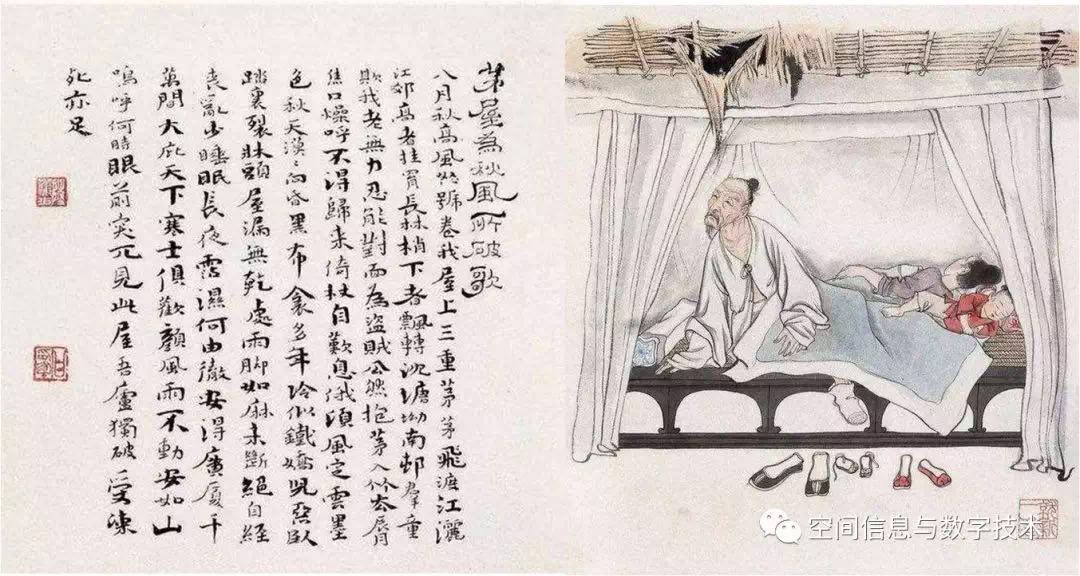 茅屋為秋風所破歌
八月秋高風怒號卷我屋上三重茅茅飛渡江灑
江郊高者挂罥長林梢下者飄轉沈塘坳南邨羣童
欺我老無力忍能對面為盜賊公然抱茅入竹去脣
焦口燥呼不得歸来倚杖自歎息俄頃風定雲墨
色秋天漠〻向昏黑布衾多年冷似鐵嬌兒惡臥
踏裏裂牀頭屋漏無乾處雨脚如麻未斷絕自經
喪亂少睡眠長夜霑濕何由徹安得廣廈千
萬間大庇天下寒士俱歡顏風雨不動安如山
嗚呼何時眼前突兀見此屋吾廬獨破受凍
死亦足
空间信息与数字技术